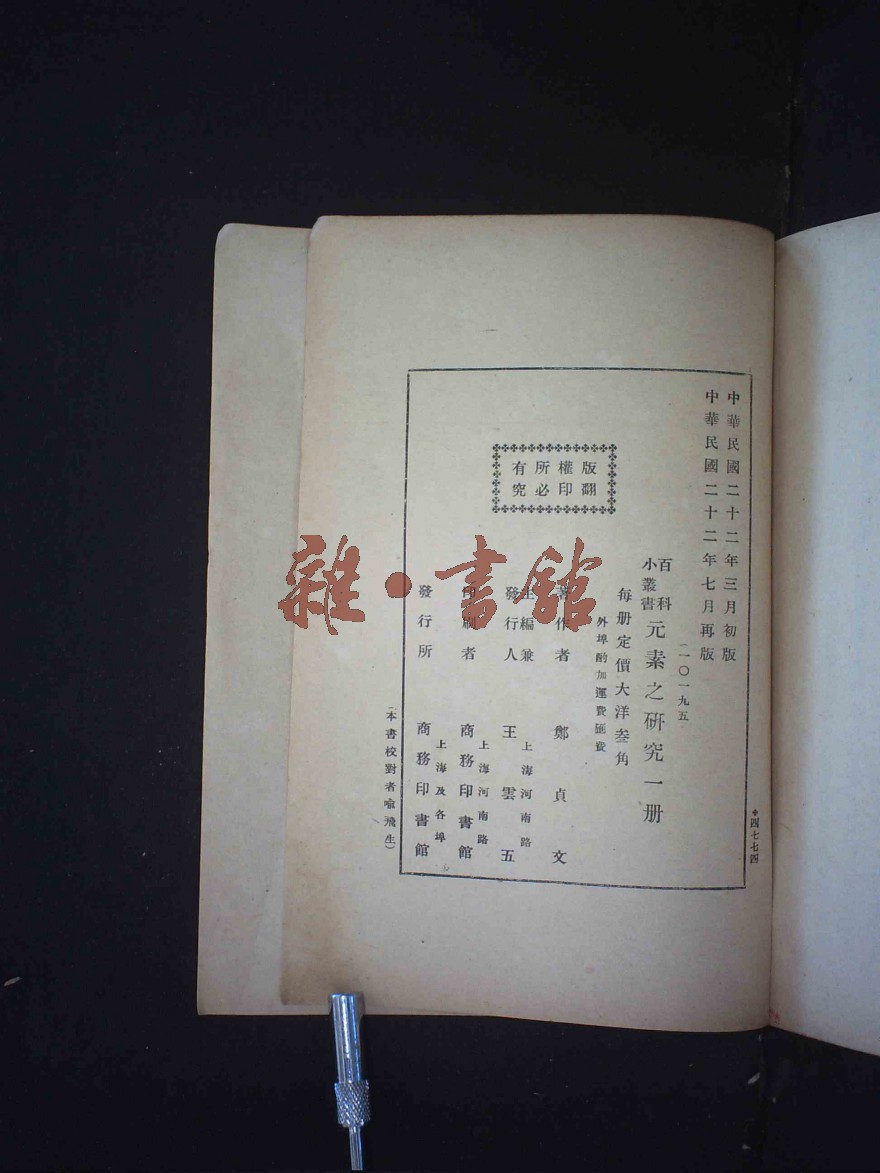 中華民國二十二年三月初版
中華民國二十二年七月再版
(一〇一九五)
百科
小叢書
元素之研究一册
每册定價大洋叁角
外埠酌加運費匯費
版權所有
翻印必究
著作者 鄭貞文
主編兼
發行人
上海河南路
王雲五
印刷者
上海河南路
商務印書館
發行所
上海及各埠
商務印書館
(本書校對者喻飛生)
四七七四
雜·書館